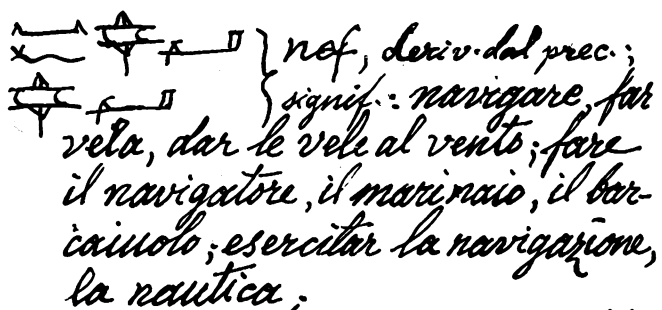 nef, deriv. dal prec.;
signif.: navigare, far
vela, dar le vele al vento; fare
il navigatore, il marinaio, il bar-
caiuolo; esercitar la navigazione,
la nautica;